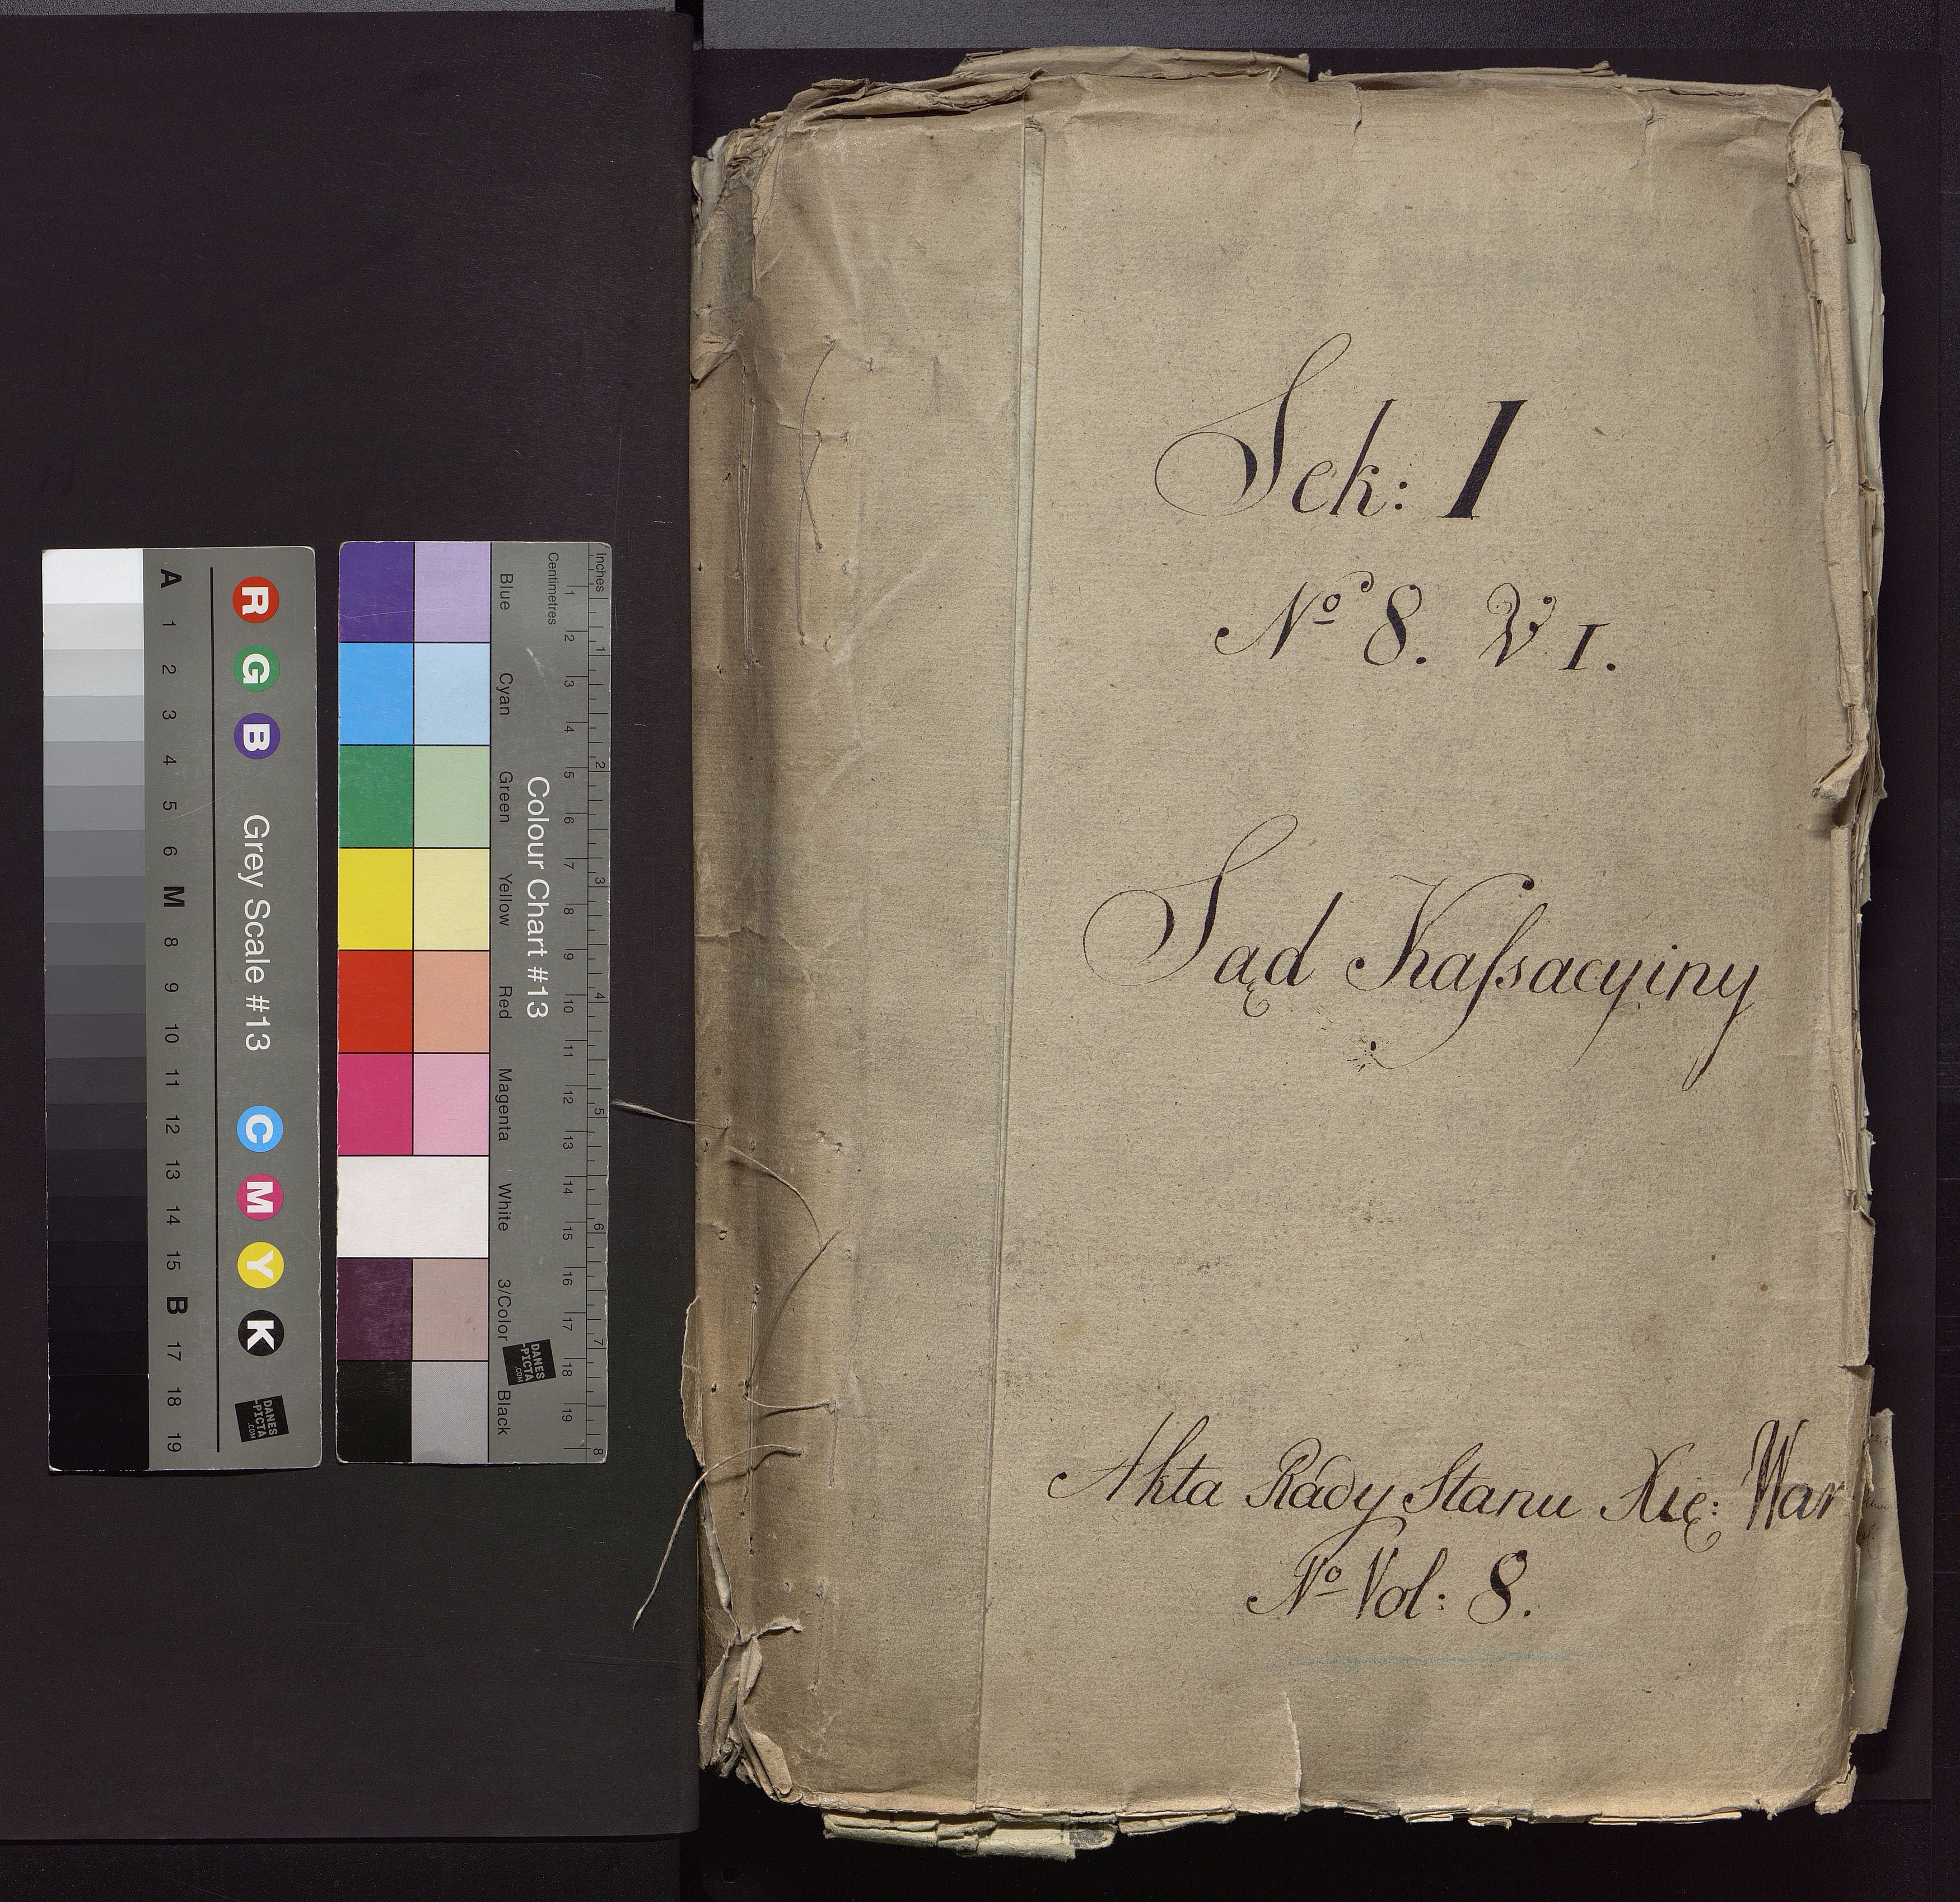 Sek: I
Nº 8. V I.
Sąd Kaſsacyiny
Akta Rady Stanu Xię: War
Nº Vol: 8.
A 1 2 3 4 5 6 M 8 9 10 11 12 13 14 15 B 17 18 19
R G B Grey Scale #13 C M Y K
DANES
-PICTA
.COM
Blue Cyan Green Yellow Red Magenta White 3/Color Black
Colour Chart #13
DANES
-PICTA
.COM
Centimetres 1 2 3 4 5 6 7 8 9 10 11 12 13 14 15 16 17 18 19
Inches 1 2 3 4 5 6 7 8